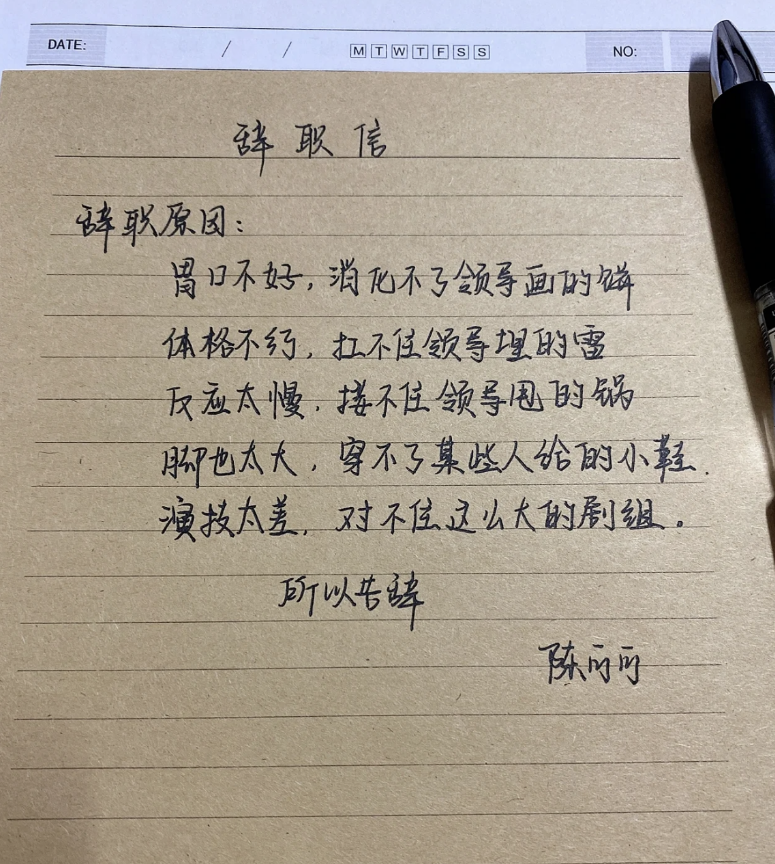 DATE: / / M T W T F S S NO:
辞职信
辞职原因:
胃口不好,消化不了领导画的饼
体格不行,扛不住领导埋的雷
反应太慢,接不住领导甩的锅
脚也太大,穿不了某些人给的小鞋.
演技太差,对不住这么大的剧组。
所以告辞
陈可可